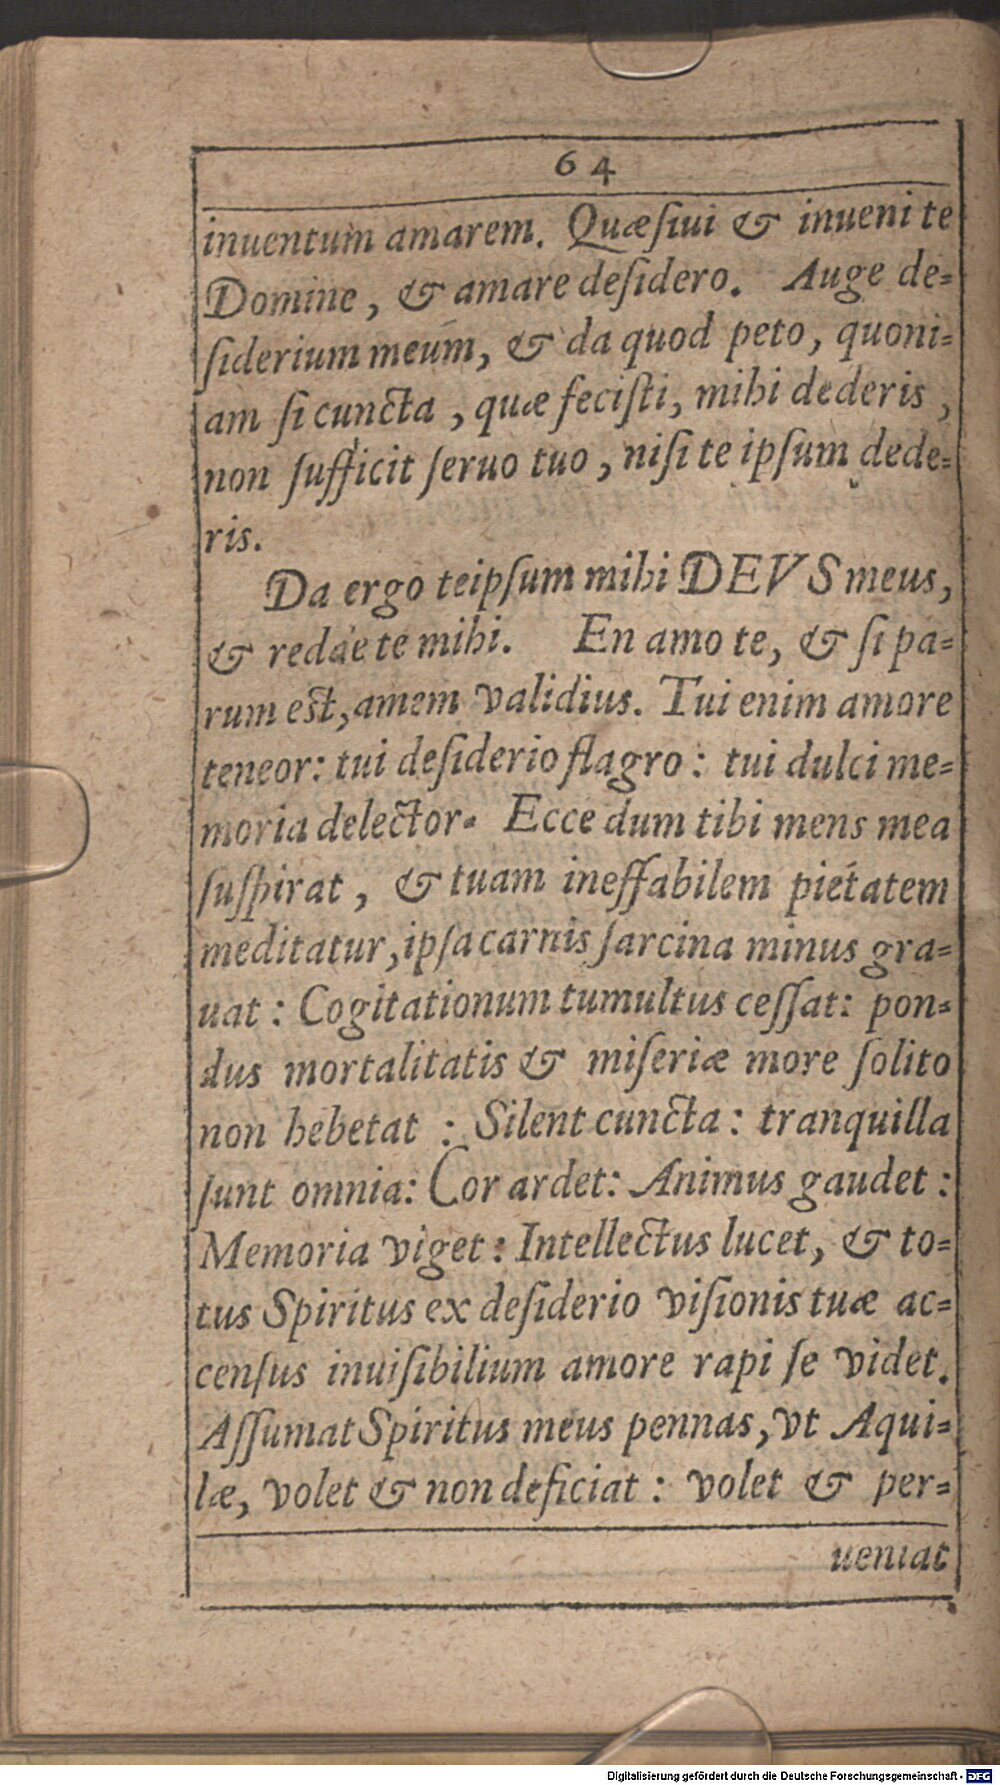 64
inuentum amarem. Quæſiui & inueni te
Domine, & amare deſidero. Auge de=
ſiderium meum, & da quod peto, quoni=
am ſi cuncta, quæ feciſti, mihi dederis,
non ſufficit ſeruo tuo, niſi te ipſum dede=
ris.
Da ergo teipſum mihi DEVS meus,
& redde te mihi. En amo te, & ſi pa=
rum est, amem validius. Tui enim amore
teneor: tui deſiderio flagro: tui dulci me=
moria delector. Ecce dum tibi mens mea
ſuſpirat, & tuam ineffabilem pietatem
meditatur, ipſa carnis ſarcina minus gra=
uat: Cogitationum tumultus ceſſat: pon=
dus mortalitatis & miſeriæ more ſolito
non hebetat: Silent cuncta: tranquilla
ſunt omnia: Cor ardet: Animus gaudet:
Memoria viget: Intellectus lucet, & to=
tus Spiritus ex deſiderio viſionis tuæ ac=
cenſus inuiſibilium amore rapi ſe videt.
Aſſumat Spiritus meus pennas, vt Aqui=
læ, volet & non deficiat: volet & per=
ueniat
Digitalisierung gefördert durch die Deutsche Forschungsgemeinschaft - DFG